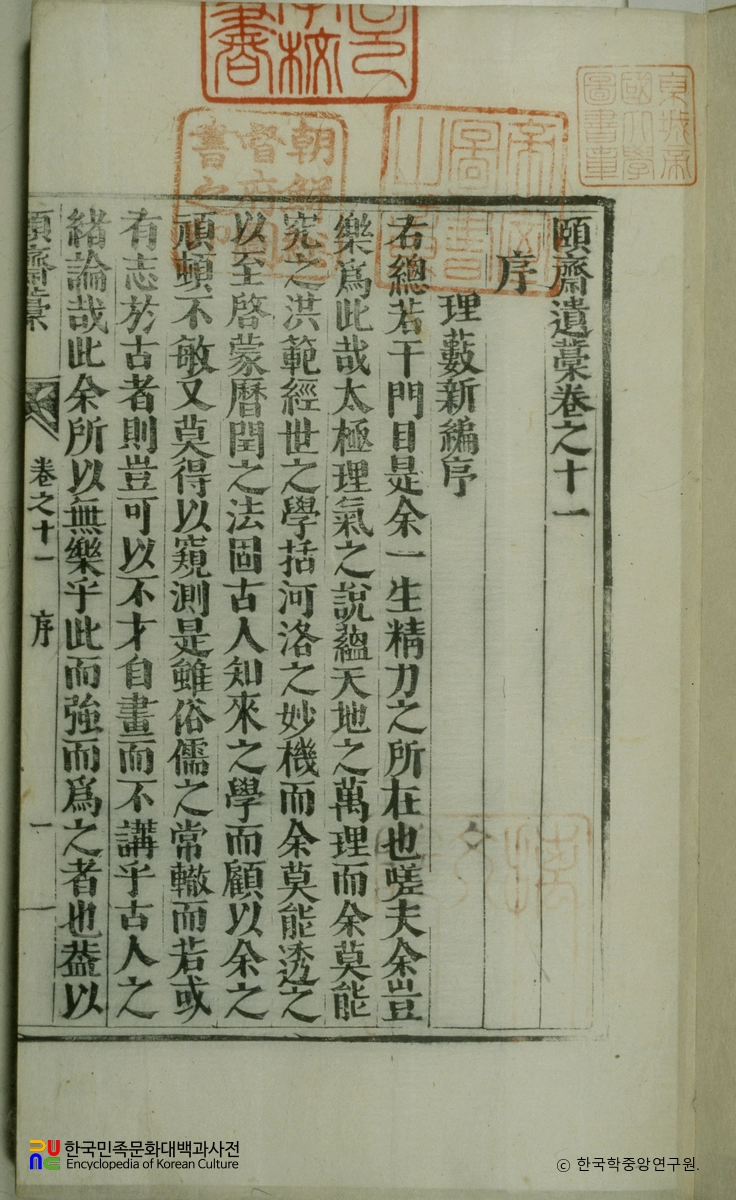 頤齋遺藁卷之十一
序
理藪新編序
右總若干門目是余一生精力之所在也嗟夫余豈
樂爲此哉太極理氣之說蘊天地之萬理而余莫能
究之洪範經世之學括河洛之妙機而余莫能透之
以至啓蒙曆閏之法固古人知來之學而顧以余之
頑頓不敏又莫得以窺測是雖俗儒之常轍而若或
有志於古者則豈可以不才自畫而不講乎古人之
緒論哉此余所以無樂乎此而強而爲之者也葢以
頤齋藁 卷之十一 序 一
東城帝
國大學
圖書章
朝鮮
督府
書之
한국민족문화대백과사전
Encyclopedia of Korean Culture
© 한국학중앙연구원.